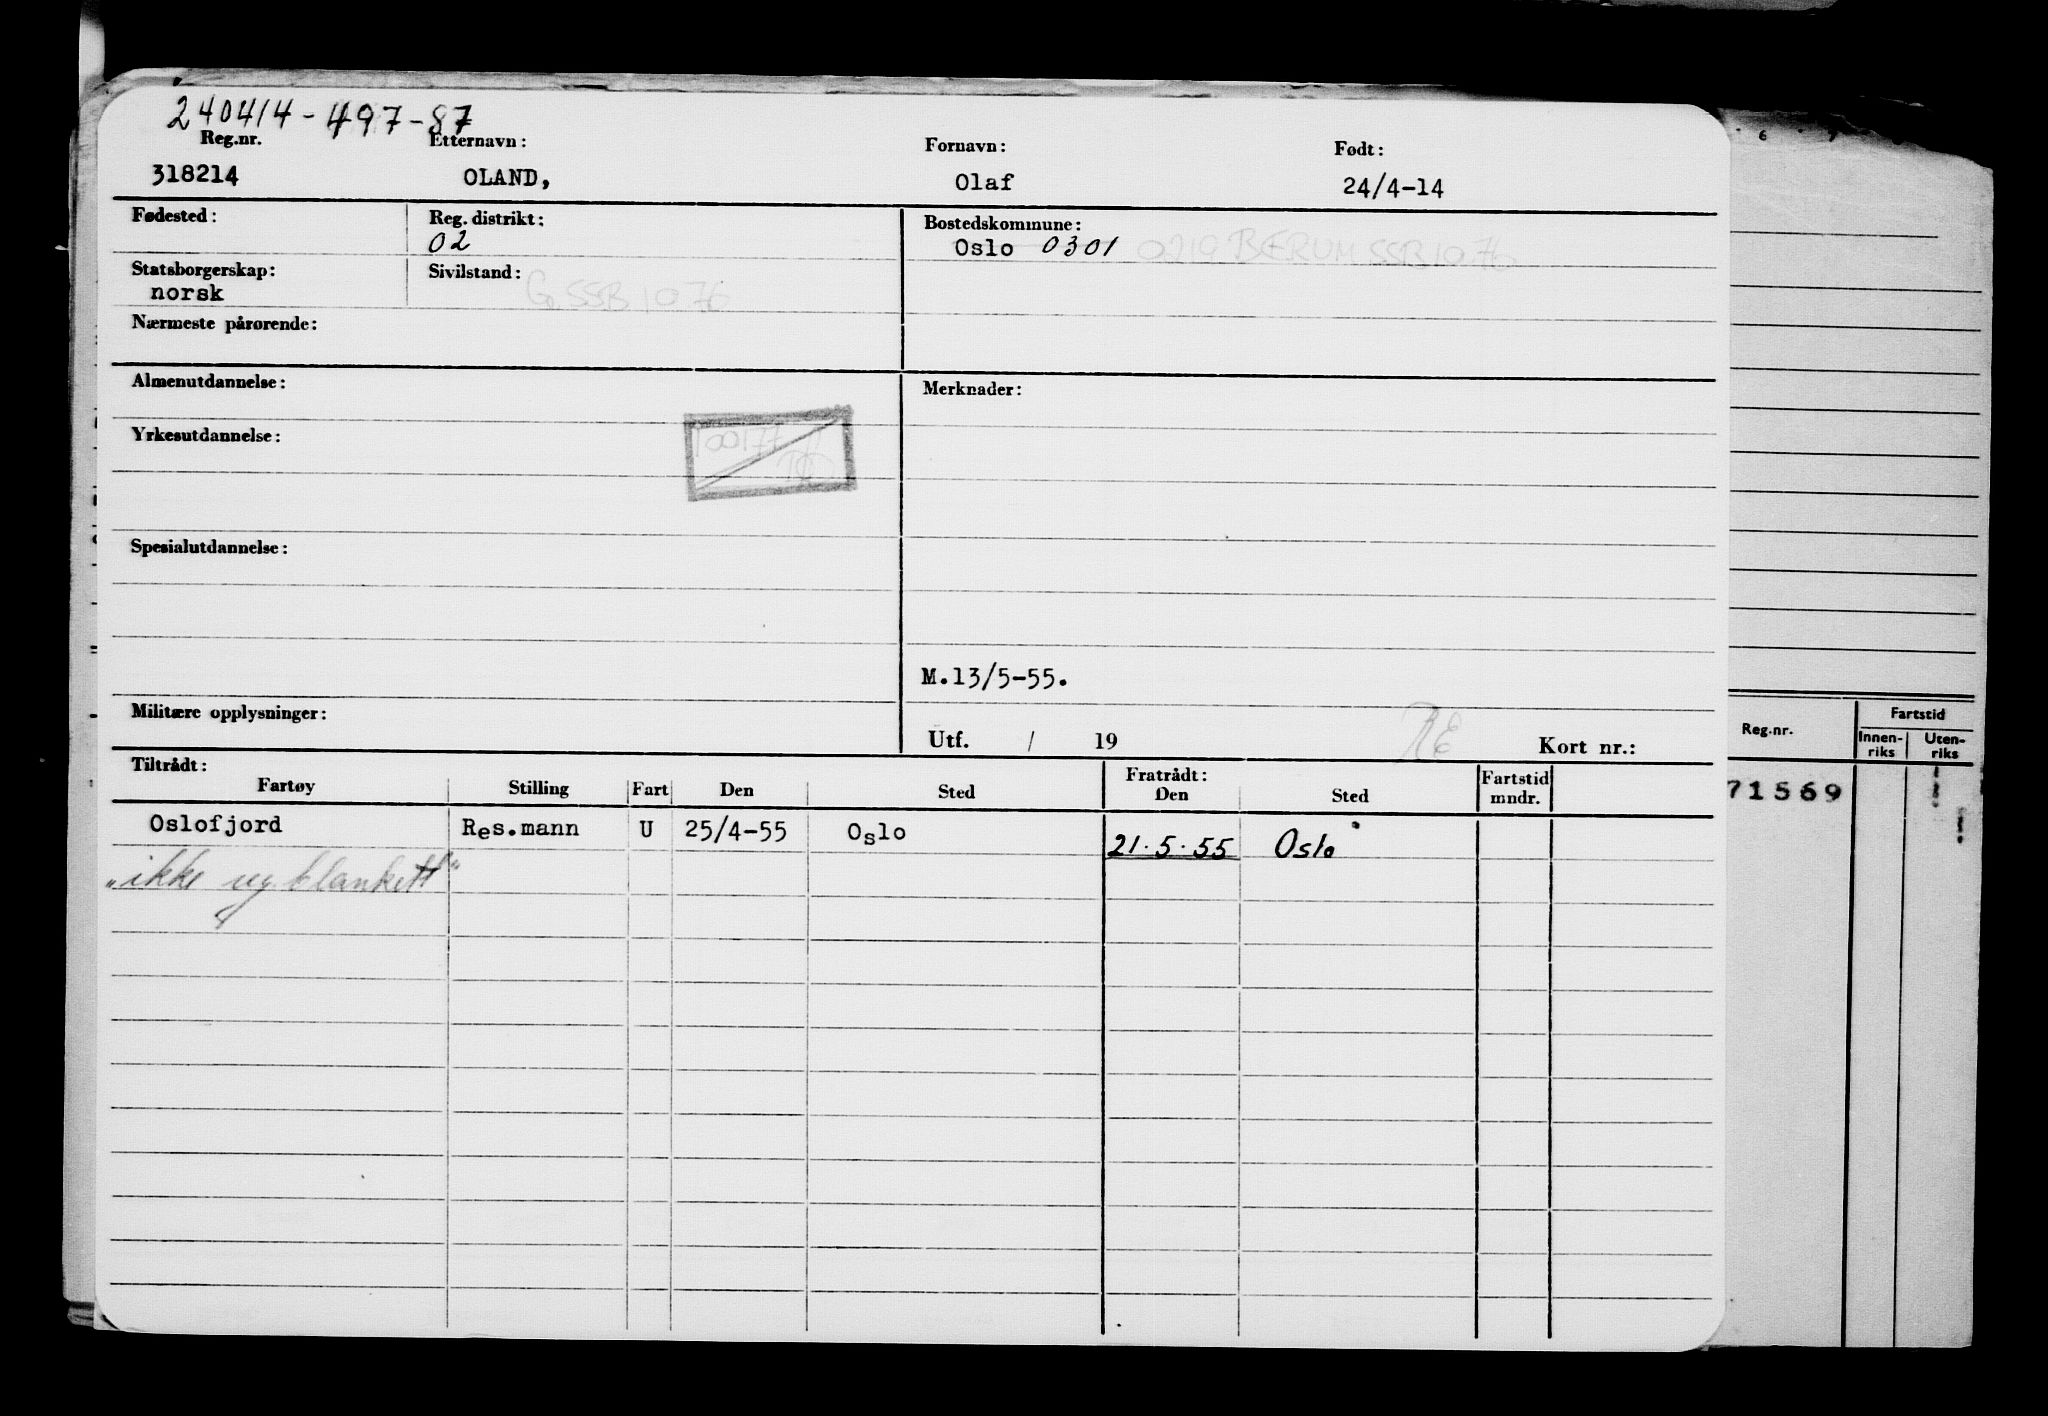 240414-497-87
Reg.nr. Etternavn: Fornavn: Født:
318214 OLAND, Olaf 24/4-14
Fødested: Reg. distrikt: Bostedskommune:
02 Oslo 0301 0219 BERUM SSB 10.76
Statsborgerskap: Sivilstand:
norsk G. SSB 10.76
Nærmeste pårørende:
Almenutdannelse: Merknader:
Yrkesutdannelse:
Spesialutdannelse:
M.13/5-55.
Militære opplysninger:
Utf. / 19 RE Kort nr.:
Tiltrådt: Fratrådt:
Fartøy Stilling Fart Den Sted Den Sted Fartstid mndr.
Oslofjord Res.mann U 25/4-55 Oslo 21.5.55 Oslo
"ikke ug. blankett"
6
Reg.nr. Fartstid
Innen-riks Uten-riks
71569